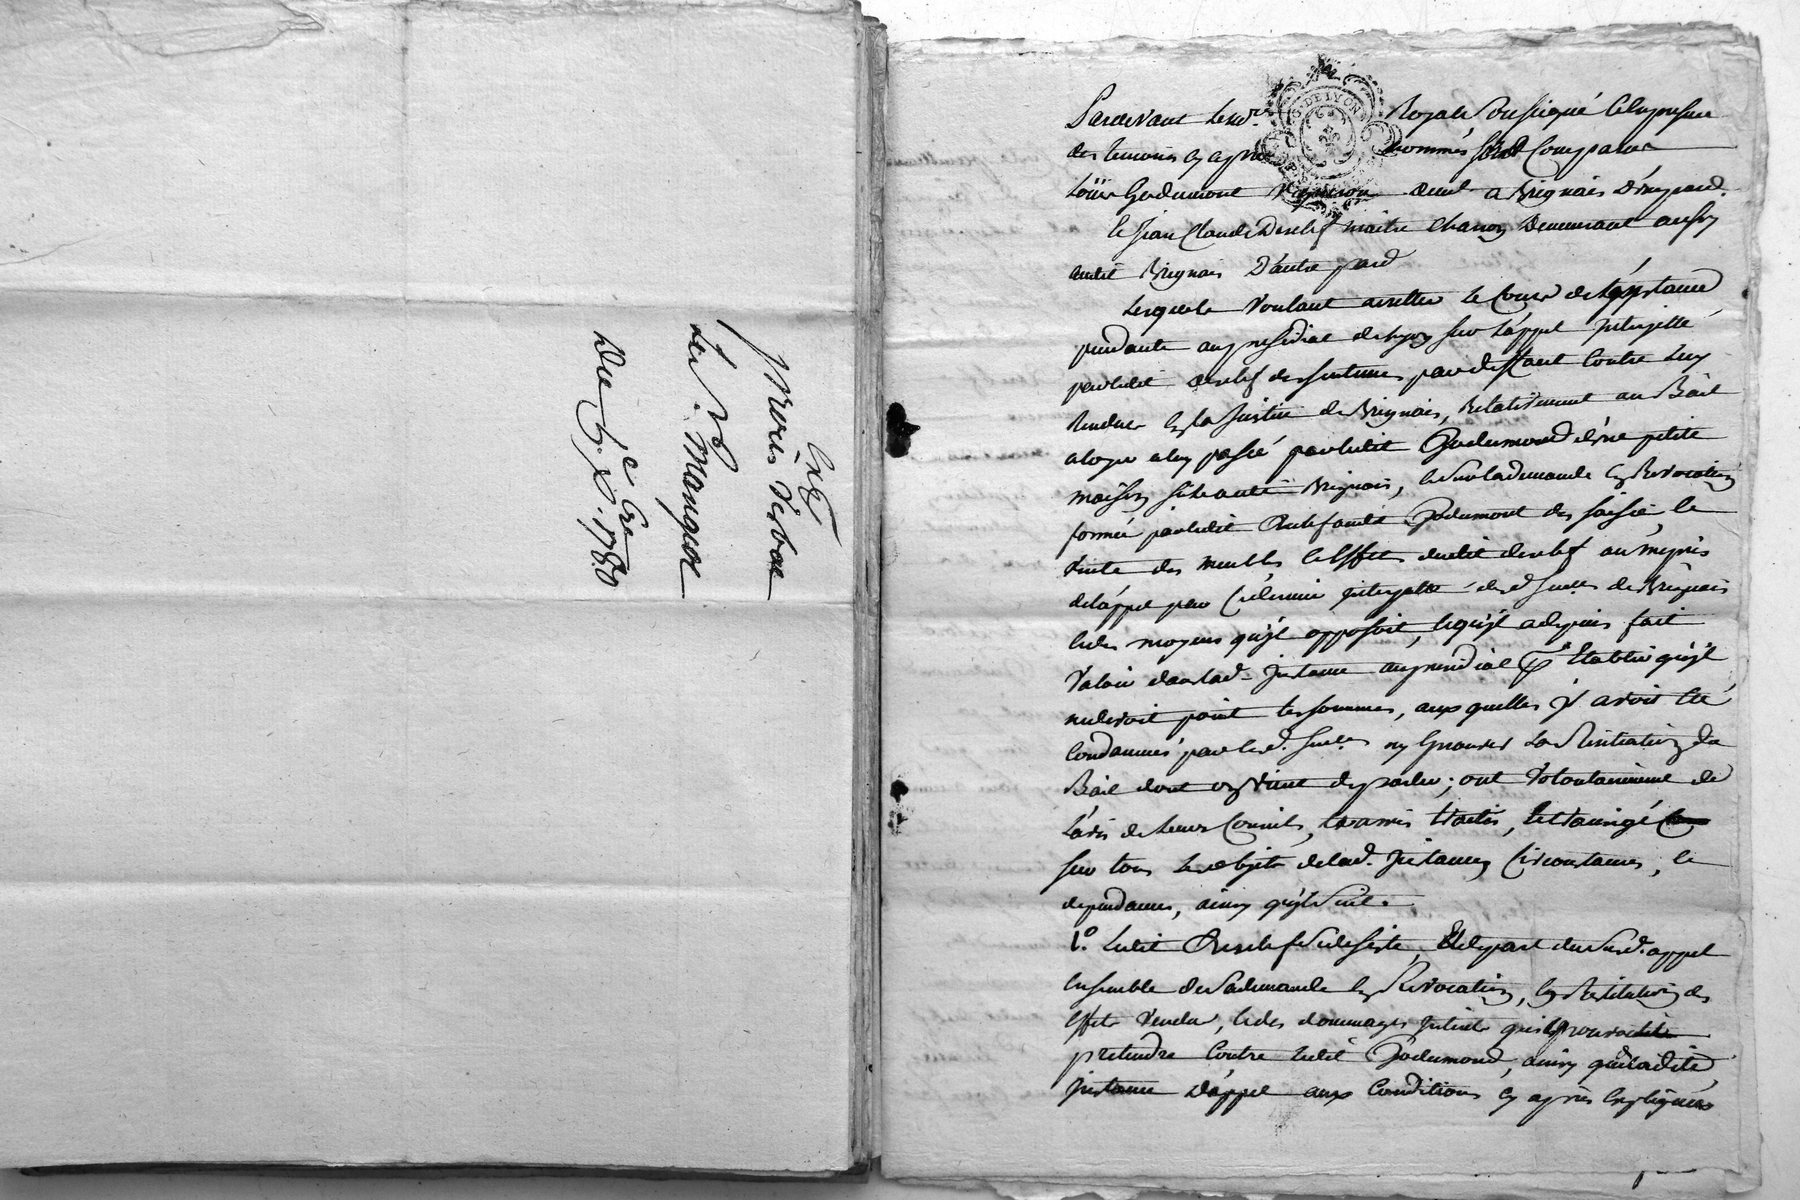 procès verbal
Le Sr. Mangot
Du 6e Xbre 1780
Pardevant le no.re Royale soussigné et en presence
des temoins cy apres nommés sont Comparus
Loüis Godumont vigneron demt. a Brignais D'une pard.
et Jean Claude Desclef maitre charron Demeurant aussy
audit Brignais D'autre pard
Lesquels voulant arretter le Cours de L'jnstance
pendante au presidial de Lyon sur L'appel jnterjetté
par ledit Desclef des sentences par deffaut contre Luy
Rendues en la justice de Brignais, Relativement au Bail
a loyer a luy passé par ledit Godumond d'une petite
maison scituée audit Brignais, et sur la demande en Revocation
formée par ledit Desclef audit Godumont des saisie, et
vente des meubles et effets dudit Desclef au mepris
de l'appel par Ce dernier jnterjetté desd. sences. de Brignais
et des moyens qu'jl opposoit, et qu'jl a depuis fait
valoir dans lad. jnstance au presidial pr. Etablir qu'jl
ne devoit point les sommes, aux quelles jl avoit été
Condamné par lesd. sences. ny Eprouver La Resiliation du
Bail dont on vient de parler; ont volontairement de
L'avis de leurs Conseils, et amis traités, et transigé
sur tous les objets de lad. jnstance, Circonstances, et
dependances, ainsy qu'jl suit.
1.° Ledit Desclef se desiste, et depart de sond. appel
ensemble de sa demande en Revocation, en Restitution des
effets vendus, et des dommages jnterets qu'il pouvoit
pretendre contre ledit Godumond, ainsy que de ladite
jnstance D'appel aux Conditions cy après expliquées